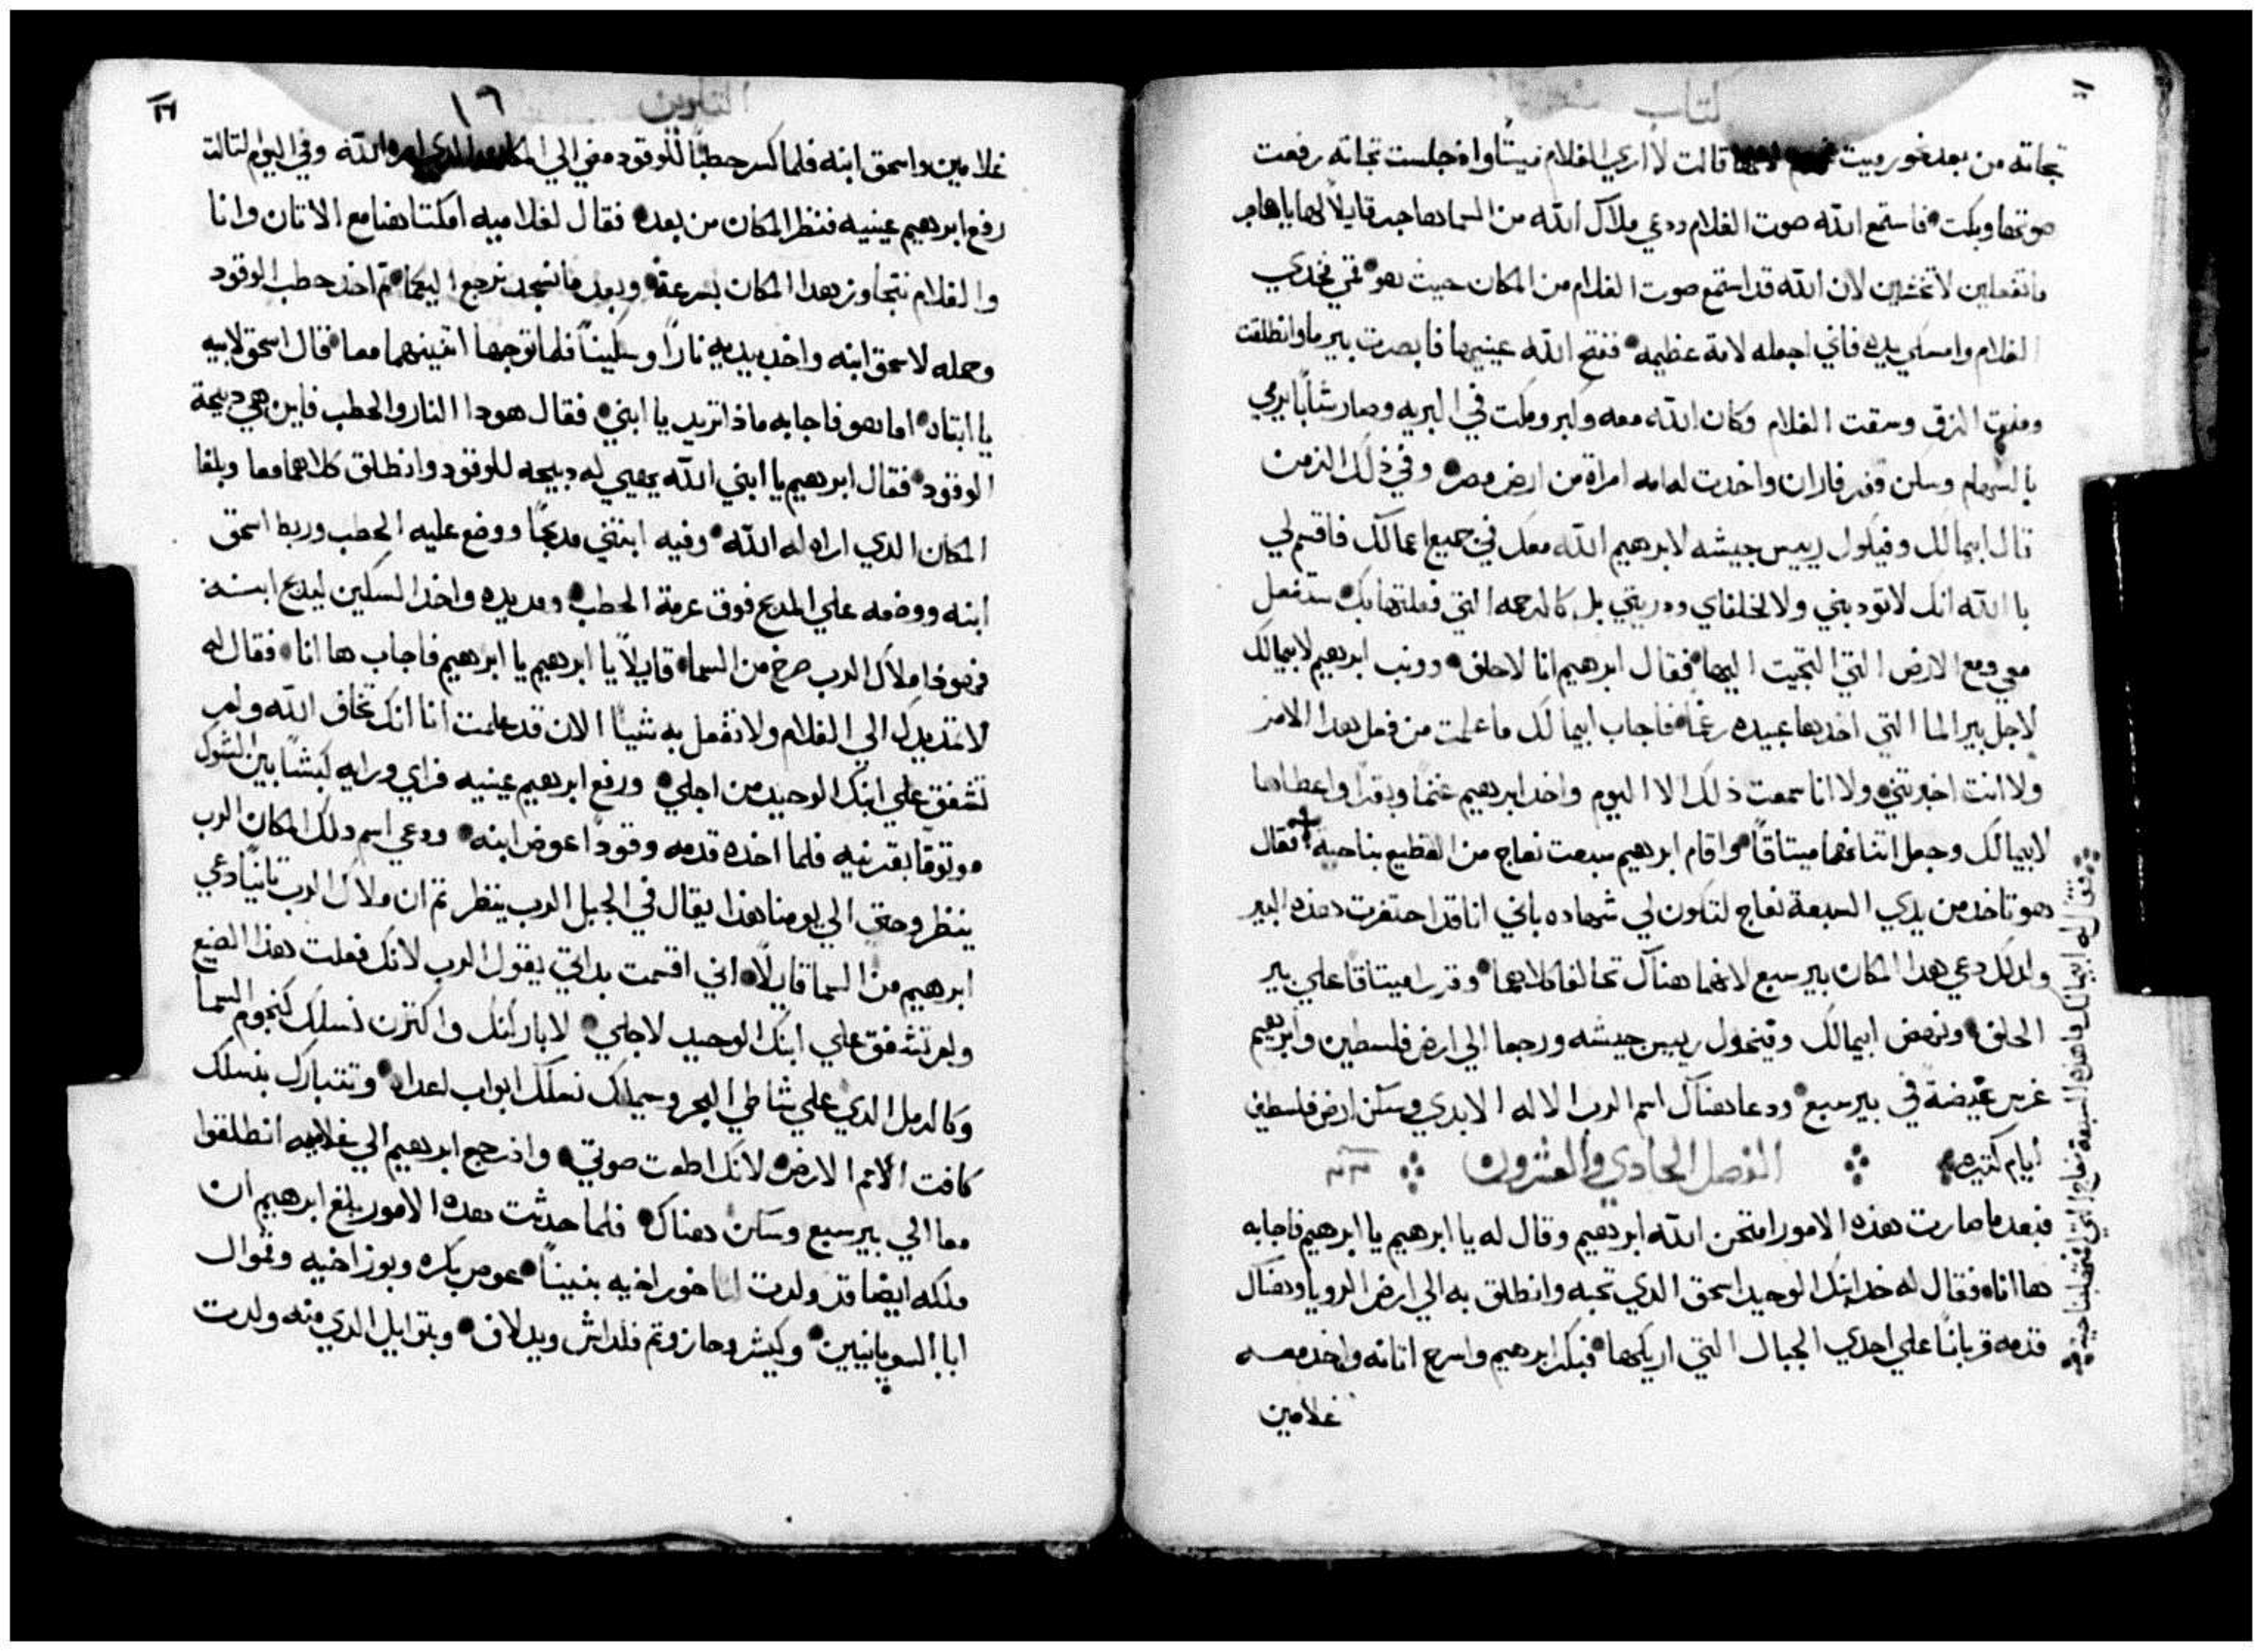 كتاب
تجاته من بعد نحو رميت لانها قالت لا اري الغلام ميتًا واذ جلست تجاته رفعت
صوتها وبكت فاستمع الله صوت الغلام ودعي ملاك الله من السما هاجر قايلاً لها يا هاجر
ما تفعلين لا تخشين لان الله قد استمع صوت الغلام من المكان حيث هو قمي فخدي
الغلام وامسكي يده فاني اجعله لامة عظيمه ففتح الله عينيها فابصرت بير ما وانطلقت
الزق وسقت الغلام وكان الله معه وكبر ومكث في البريه وصار شابًا يرمي
بالسهام وسكن قفر فاران واخدت له امه امراة من ارض مصر وفي ذلك الزمن
قال ابيمالك وفيكول رييس جيشه لابرهيم الله معك في جميع اعمالك فاقسم لي
بالله انك لا توديني ولا لخلفاي ودريتي بل كالرحمه التي فعلتها بك ستفعل
معي ومع الارض التي التجيت اليها فقال ابرهيم انا لاحلف وونب ابرهيم لابيمالك
لاجل بير الما التي اخدها عبيده رغمًا فاجاب ابيمالك ما علمت من فعل هدا الامر
ولا انت اخبرتني ولا انا سمعت ذلك الا اليوم واخد ابرهيم غنمًا وبقرًا واعطاها
لابيمالك وجعل اتناهما ميتاقًا واقام ابرهيم سبعت نعاج من القطيع بناحيه فقال
هو تاخد من يدي السبعة نعاج لتكون لي شهاده باني انا قد احتفرت هذه البير
ولدلك دعي هدا المكان بير سبع لانهما هناك تحالفا كلاهما وقررا ميتاقًا علي بير
الحلف ونهض ابيمالك وفيخول رييس جيشه ورجعا الي ارض فلسطين وابرهيم
غرس غيضة في بير سبع ودعا هناك اسم الرب الاله الابدي وسكن ارض فلسطين
ايام كتيره الفصل الحادي والعشرون
فبعد ما صارت هذه الامور امتحن الله ابرهيم وقال له يا ابرهيم يا ابرهيم فاجابه
ها انا فقال له خد ابنك الوحيد اسحق الدي تحبه وانطلق به الي ارض الرويا وهناك
قدمه قربانًا علي احدي الجبال التي اريكها فبكر ابرهيم واسرج اتانه واخد معه
غلامين
فقال له ابيمالك ما هذه السبعة نعاج التي اقمتها بناحية
التكوين
١٦
غلامين واسحق ابنه فلما كسر حطبًا للوقود مضي الي المكان الدي امره الله وفي اليوم التالت
رفع ابرهيم عينيه فنظر المكان من بعد فقال لغلاميه امكتا هنا مع الاتان وانا
والغلام نتجاوز هدا المكان بسرعة وبعد ما نسجد نرجع اليكما تم اخد حطب الوقود
وحمله لاسحق ابنه واخد بيديه نارًا وسكينًا فلما توجها اتنينهما معا قال اسحق لابيه
يا ابتاه اما هو فاجابه ماذا تريد يا ابني فقال هودا النار والحطب فاين هي دبيحة
الوقود فقال ابرهيم يا ابني الله يهيي له دبيحه للوقود وانطلق كلاهما معا وبلغا
المكان الدي اراه له الله وفيه ابتني مدبحًا ووضع عليه الحطب وربط اسحق
ابنه ووضعه علي المدبح فوق عرمة الحطب ومد يده واخد السكين ليدبح ابنه
فهودا ملاك الرب صرخ من السما قايلاً يا ابرهيم يا ابرهيم فاجاب ها انا فقال له
لا تمد يدك الي الغلام ولا تفعل به شيًا الان قد علمت انا انك تخاف الله ولم
تشفق علي ابنك الوحيد من اجلي ورفع ابرهيم عينيه فراي ورايه كبشًا بين الشوك
موتوقًا بقرنيه فلما اخده قدمه وقودًا عوض ابنه ودعي اسم دلك المكان الرب
ينظر وحتي الي يومنا هذا يقال في الجبل الرب ينظر تم ان ملاك الرب تانيًا دعي
ابرهيم من السما قايلاً اني اقسمت بداتي يقول الرب لانك فعلت هذا الصنع
ولم تشفق علي ابنك الوحيد لاجلي لاباركنك واكترن نسلك كنجوم السما
وكالرمل الدي علي شاطي البحر وسيملك نسلك ابواب اعداه وتتبارك بنسلك
كافت الامم الارض لانك اطعت صوتي واذ رجع ابرهيم الي غلاميه انطلقوا
معا الي بير سبع وسكن هناك فلما حدثت هده الامور بلغ ابرهيم ان
ملكه ايضا قد ولدت لناخور اخيه بنينًا عوص بكره وبوز اخيه وقموال
ابا السوريانيين وكيشر وحازو تم فلداش ويدلاف وبتوايل الدي منه ولدت